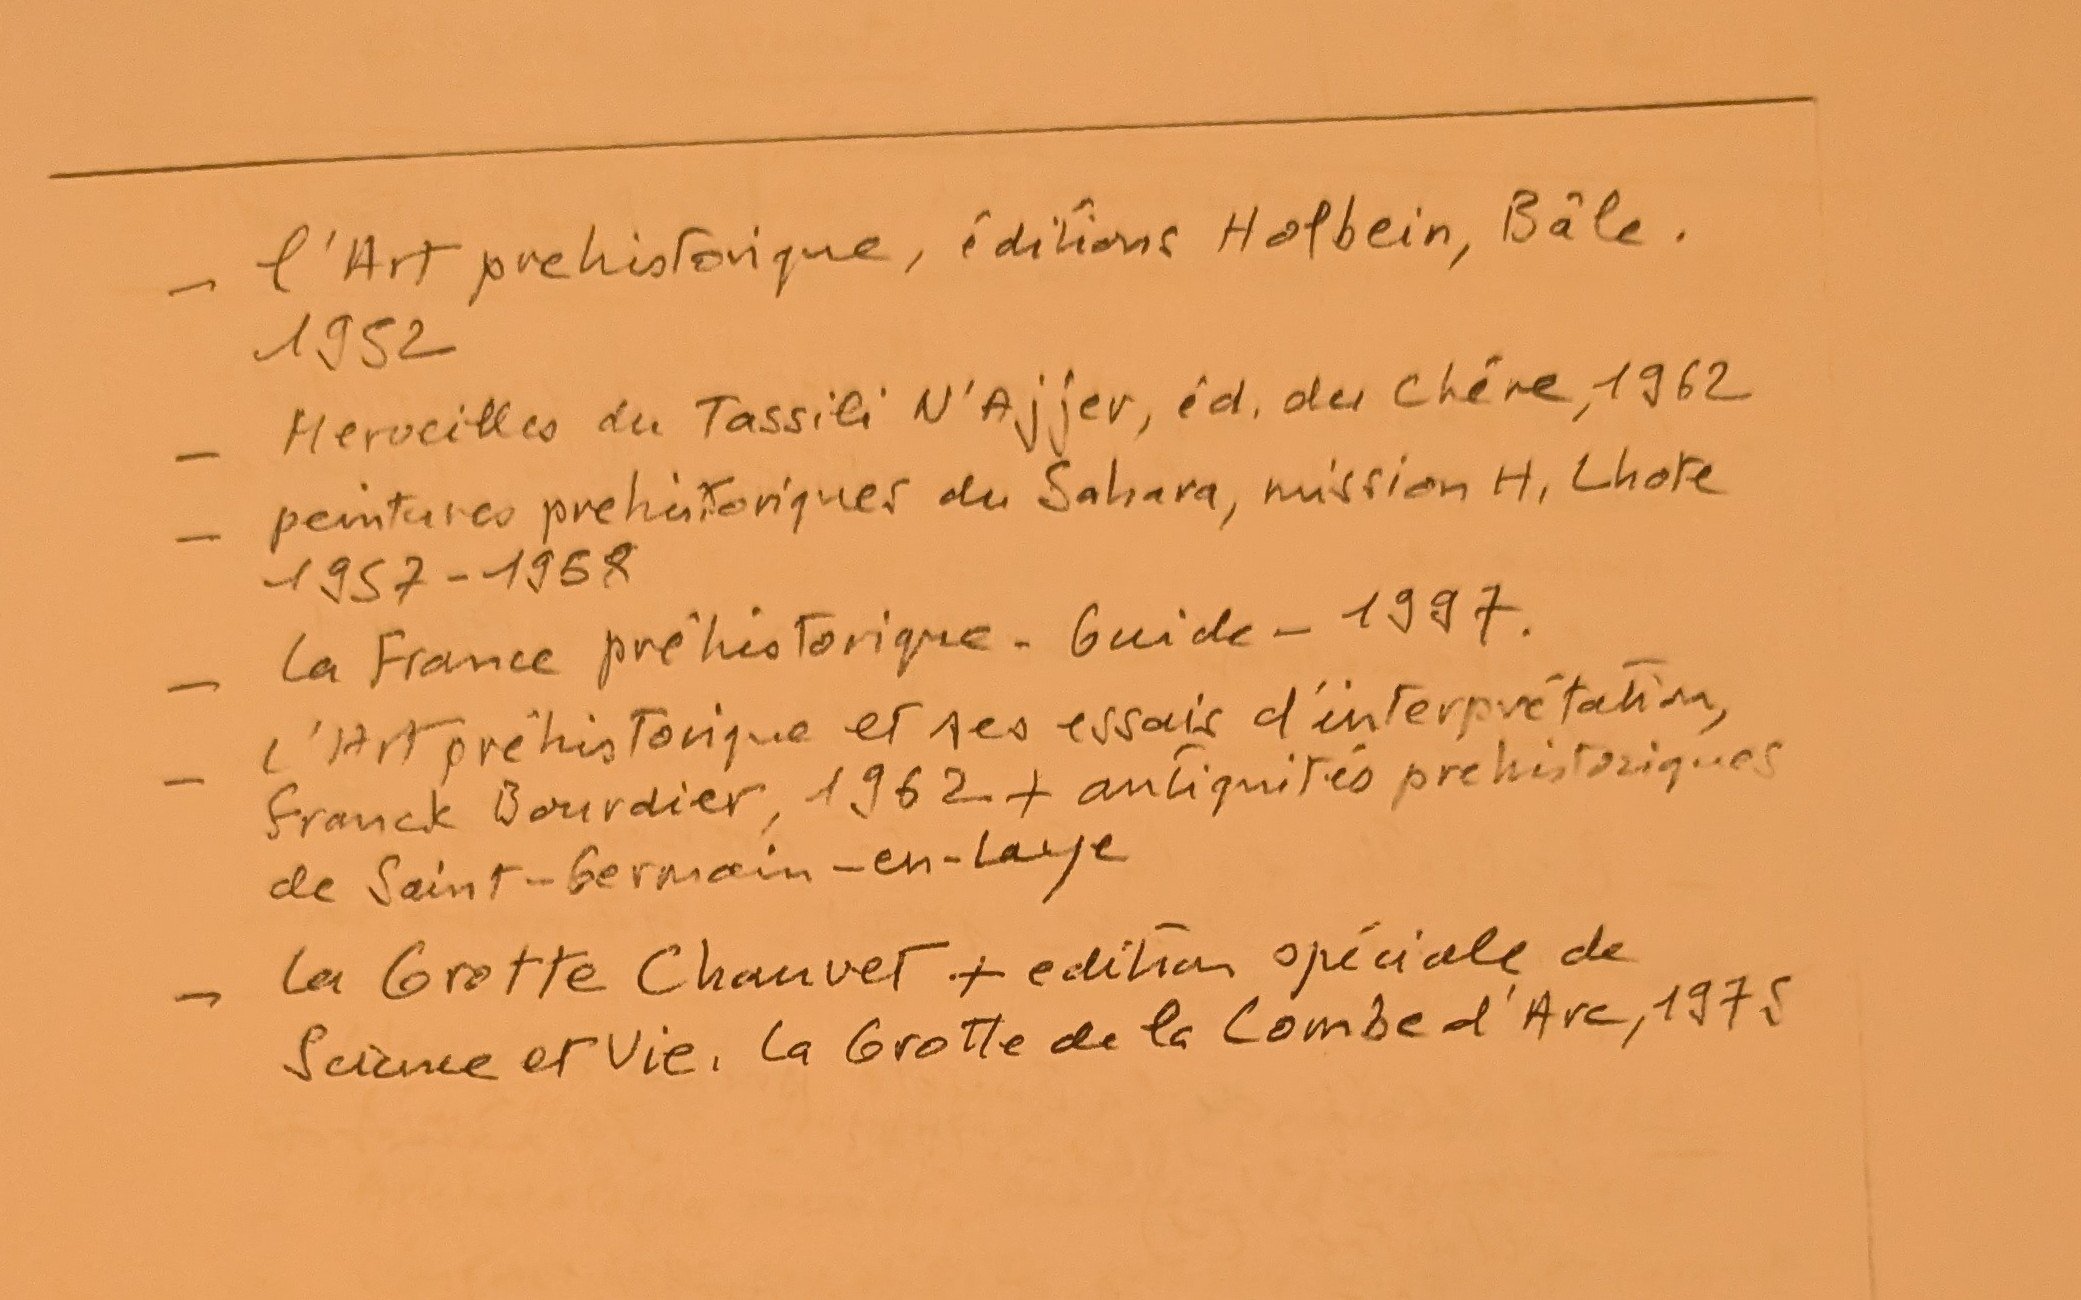 - l'Art prehistorique, éditions Holbein, Bâle.
1952
- Merveilles du Tassili N'Ajjer, éd. du Chêne, 1962
- peintures prehistoriques du Sahara, mission H. Lhote
1957-1958
- La France préhistorique - Guide - 1997.
- L'Art préhistorique et ses essais d'interprétation,
Franck Bourdier, 1962 + antiquités prehistoriques
de Saint-Germain-en-Laye
- La Grotte Chauvet + edition spéciale de
Science et Vie. La Grotte de la Combe d'Arc, 1975